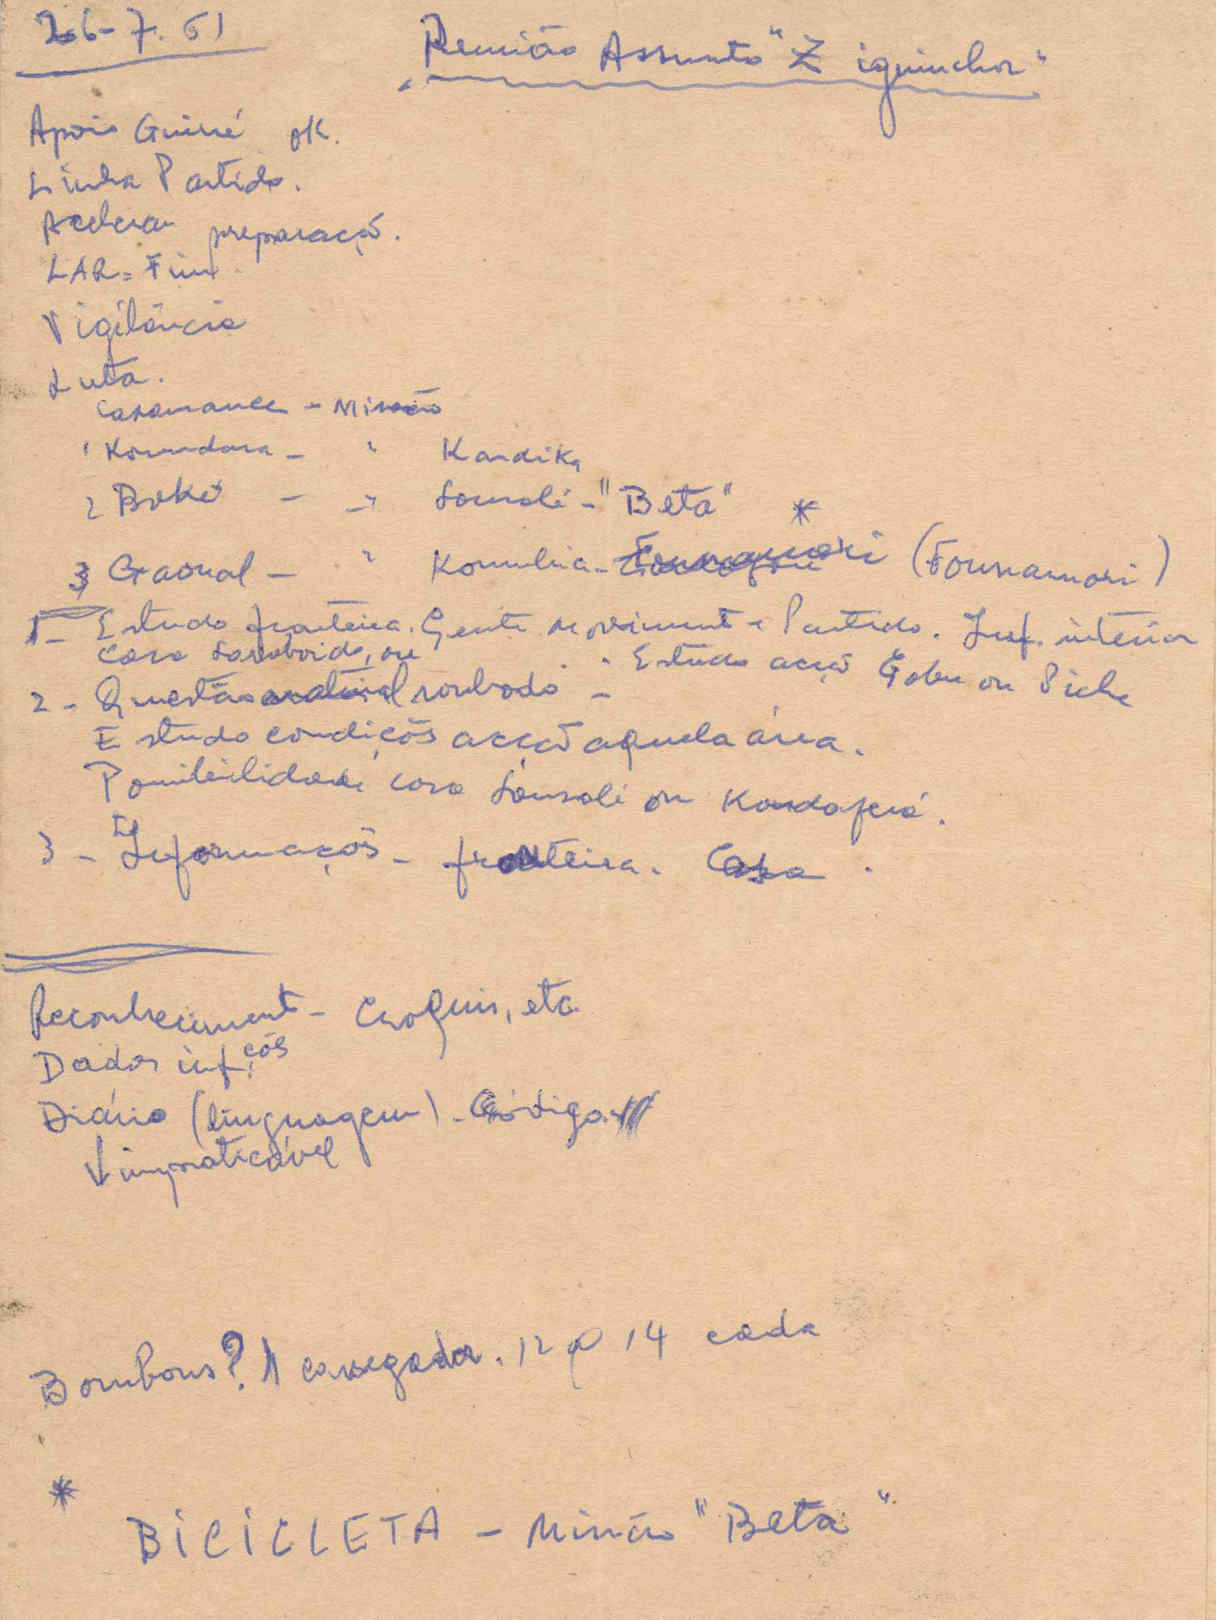 26-7.61
Reunião Assunto "Ziguinchor"
Apoio Guiné OK.
Linha Partido.
Acelerar preparaçõ.
LAR = Fim
Vigilância
Luta.
Casamance - Missão
1 Koundara - " Kandika
2 Boké - " Sansalé - "Beta" *
3 Gaoual - " Koumbia - (Founamori)
1 - Estudo fronteira. Gente moviment e Partido. Inf. interior
caso
Estudo acçõ Gabu ou Piche
2 - Questão roubado -
Estudo condiçõs acçõ aquela área.
Possibilidade casa Sansalé ou Kandafará.
3 - Informaçõs - fronteira. Casa.
Reconheciment - Croquis, etc.
Dados inf.çõs
Diário (linguagem) - Código.
impraticável
Bombons? 1 carregador. 12 p 14 cada
* BICICLETA - Missão "Beta"